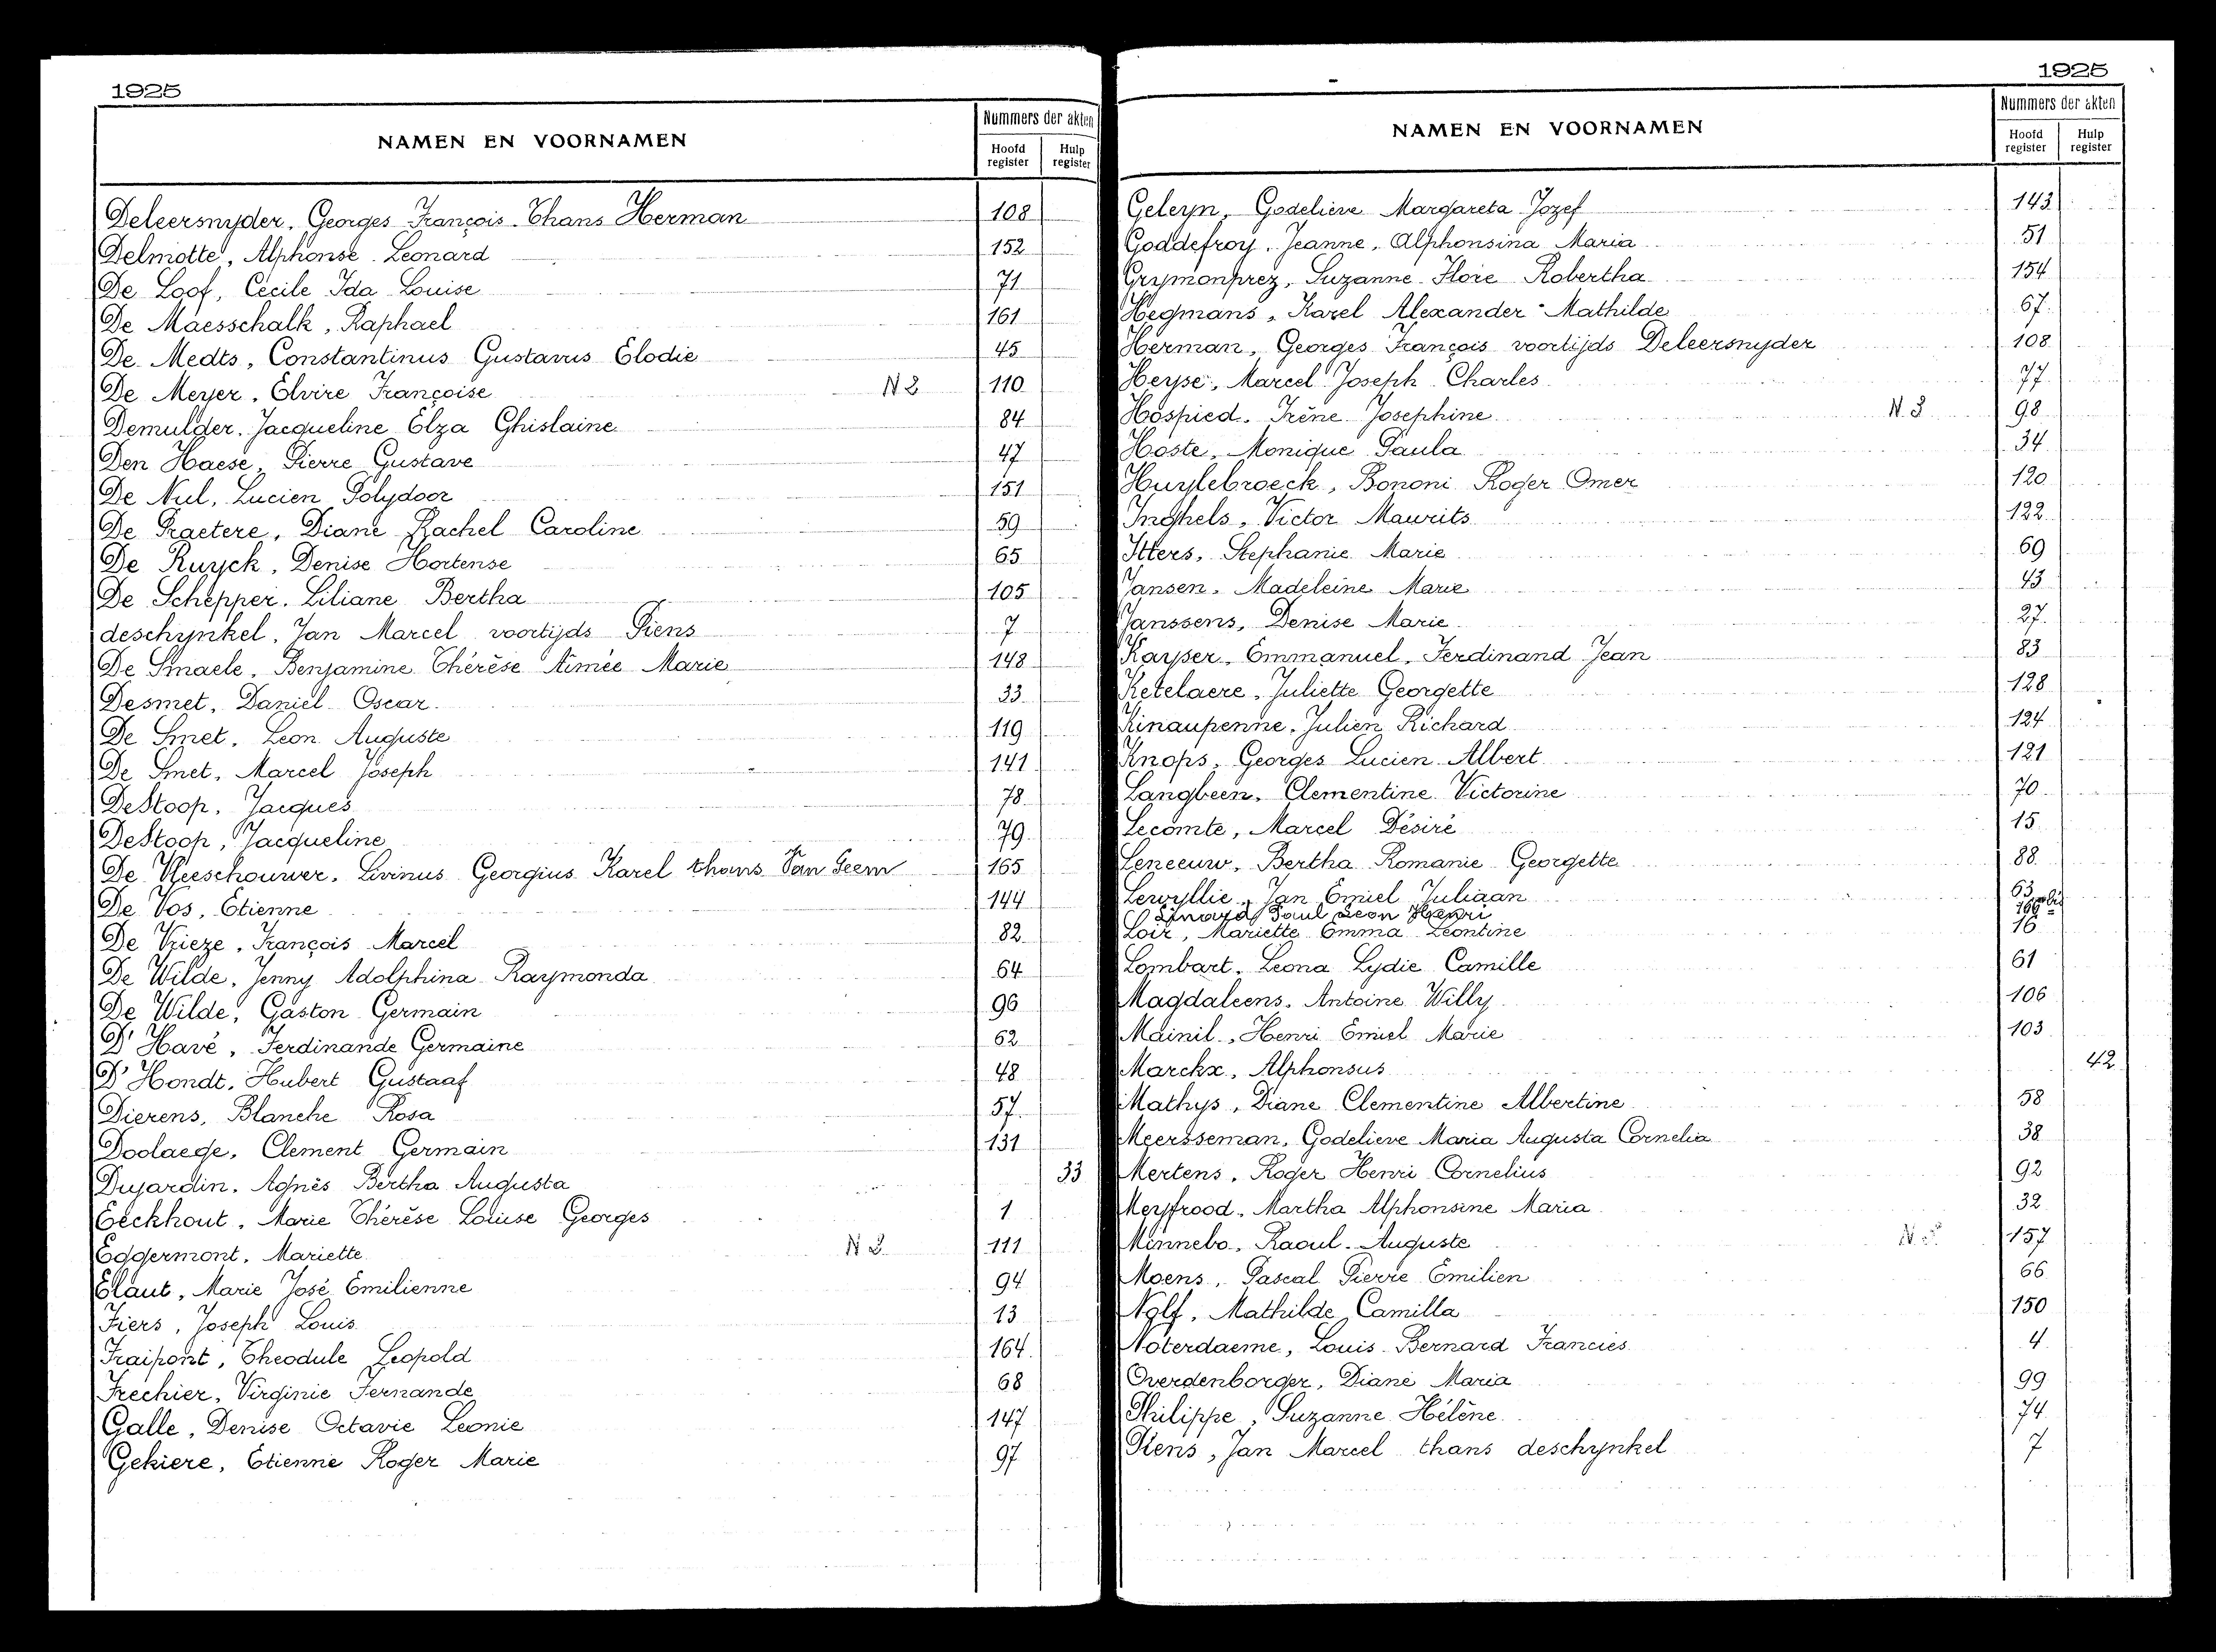 1925
NAMEN EN VOORNAMEN
Nummers der akten
Hoofd register
Hulp register
Deleersnyder, Georges François. Thans Herman 108
Delmotte, Alphonse Leonard 152
De Loof, Cécile Ida Louise 71
De Maesschalk, Raphael 161
De Medts, Constantinus Gustavus Elodie 45
De Meyer, Elvire Françoise N2 110
Demulder, Jacqueline Elza Ghislaine 84
Den Haese, Pierre Gustave 47
De Nul, Lucien Polydoor 151
De Praetere, Diane Rachel Caroline 59
De Ruyck, Denise Hortense 65
De Schepper, Liliane Bertha 105
deschynkel, Jan Marcel voortijds Piens 7
De Smaele, Benjamine Thérèse Aimée Marie 148
Desmet, Daniel Oscar 33
De Smet, Leon Auguste 119
De Smet, Marcel Joseph 141
DeStoop, Jacques 78
DeStoop, Jacqueline 79
De Vleeschouwer, Livinus Georgius Karel thans Van Geem 165
De Vos, Etienne 144
De Vrieze, François Marcel 82
De Wilde, Jenny Adolphina Raymonda 64
De Wilde, Gaston Germain 96
D'Havé, Ferdinande Germaine 62
D'Hondt, Hubert Gustaaf 48
Dierens, Blanche Rosa 57
Doolaege, Clement Germain 131
Dujardin, Agnès Bertha Augusta 33
Eeckhout, Marie Thérèse Louise Georges 1
Eggermont, Mariette N2 111
Elaut, Marie José Emilienne 94
Fiers, Joseph Louis 13
Fraipont, Theodule Leopold 164
Frechier, Virginie Fernande 68
Galle, Denise Octavie Leonie 147
Gekiere, Etienne Roger Marie 97
1925
NAMEN EN VOORNAMEN
Nummers der akten
Hoofd register
Hulp register
Geleyn, Godelieve Margareta Jozef 143
Goddefroy, Jeanne, Alphonsina Maria 51
Grymonprez, Suzanne Flore Robertha 154
Hegmans, Karel Alexander Mathilde 67
Herman, Georges François voortijds Deleersnyder 108
Heyse, Marcel Joseph Charles 77
Hospied, Irène Josephine N3 98
Hoste, Monique Paula 34
Huylebroeck, Bononi Roger Omer 120
Inghels, Victor Maurits 122
Itters, Stephanie Marie 69
Jansen, Madeleine Marie 43
Janssens, Denise Marie 27
Kayser, Emmanuel, Ferdinand Jean 83
Ketelaere, Juliette Georgette 128
Kinaupenne, Julien Richard 124
Knops, Georges Lucien Albert 121
Langbeen, Clementine Victorine 70
Lecomte, Marcel Désiré 15
Leneeuw, Bertha Romanie Georgette 88
Lewyllie, Jan Emiel Juliaan 63
Linard Paul Leon Henri 166 bis
Loix, Mariette Emma Leontine 16
Lombart, Leona Lydie Camille 61
Magdaleens, Antoine Willy 106
Mainil, Henri Emiel Marie 103
Marckx, Alphonsus 42
Mathys, Diane Clementine Albertine 58
Meersseman, Godelieve Maria Augusta Cornelia 38
Mertens, Roger Henri Cornelius 92
Meyfrood, Martha Alphonsine Maria 32
Minnebo, Raoul Auguste 157
Moens, Pascal Pierre Emilien 66
Nolf, Mathilde Camilla 150
Noterdaeme, Louis Bernard Francies 4
Overdenborger, Diane Maria 99
Philippe, Suzanne Hélène 74
Piens, Jan Marcel thans deschynkel 7